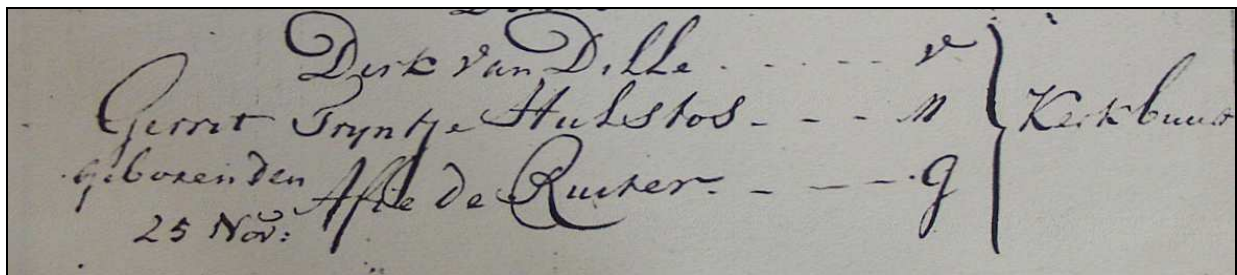 Dirk van Dille . - . - - - v
Gerrit Tryntje Hulstos - - - M
geboren den Afie de Ruiter - - - G
25 Nov:
Kerkbuurt